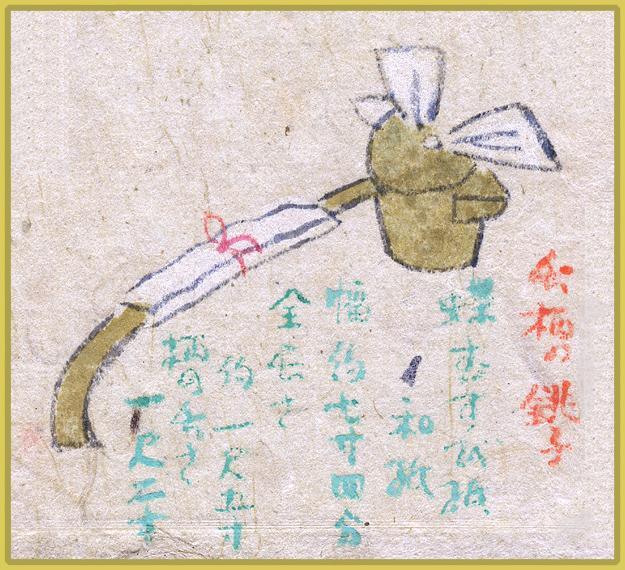 長柄の銚子
蝶むすび紙
和紙
幅 約七寸四分
全長さ
約一尺五寸
柄の長さ
一尺二寸